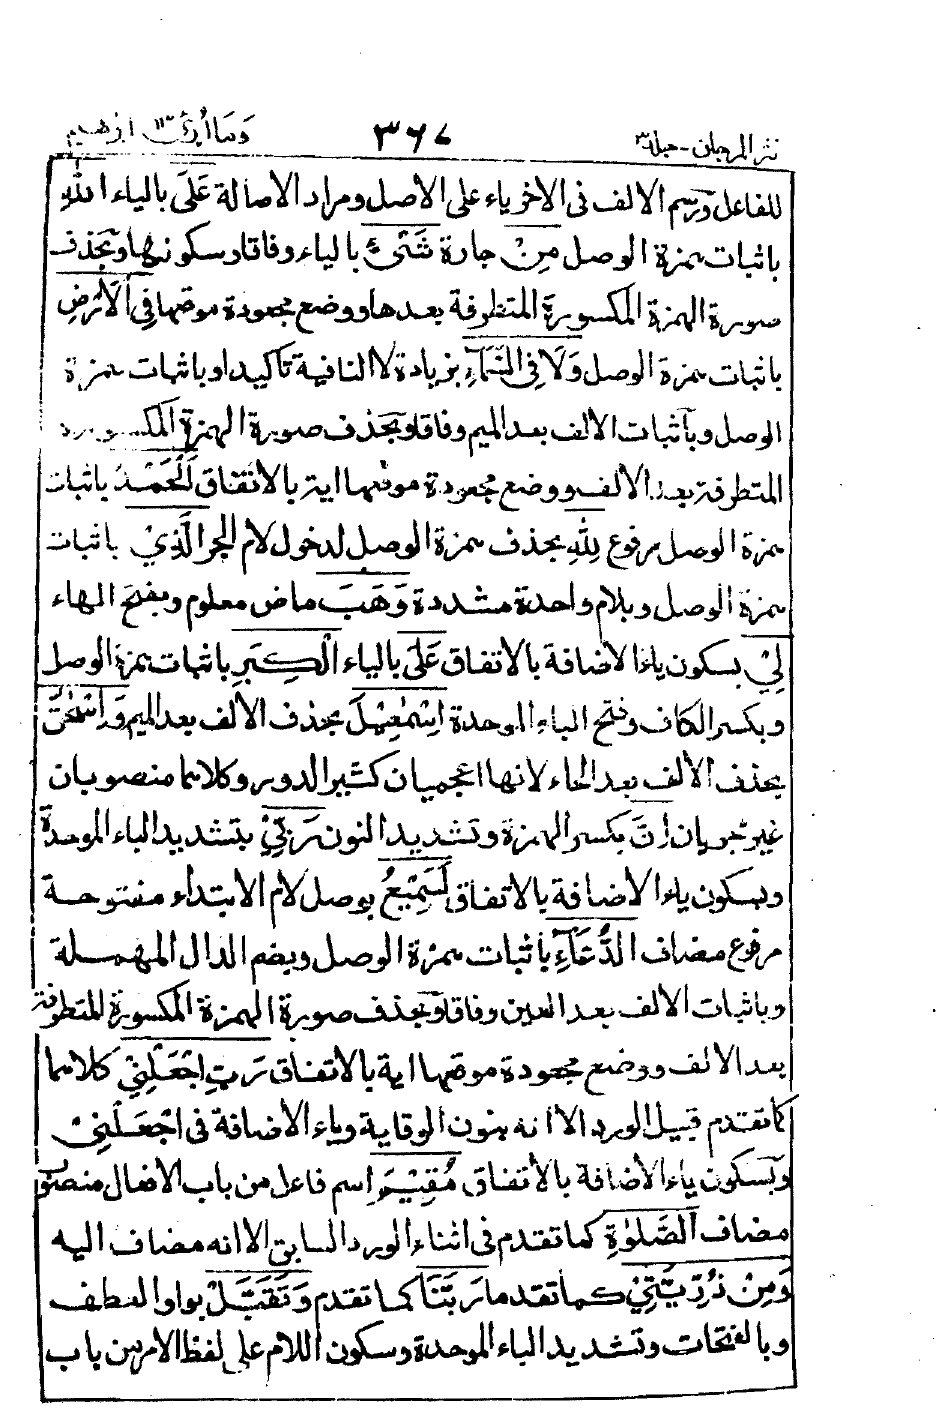 نثر المرجان - جلد ٣ ٣٦٧ وما أبرئ ١٣ ابراهيم
للفاعل ورسم الالف فى الاخر ياء على الاصل ومراد الامالة عَلَى بالياء اللهِ
باثبات همزة الوصل مِنْ جارة شَىْءٍ بالياء وفاقا وسكونها وبحذف
صورة الهمزة المكسورة المتطرفة بعدها ووضع مجعودة موقعها فِى الْاَرْضِ
باثبات همزة الوصل وَلَا فِى السَّمَآءِ بزيادة لا النافية تاكيدا وباثبات همزة
الوصل وباثبات الالف بعد الميم وفاقا وبحذف صورة الهمزة المكسورة
المتطرفة بعد الالف ووضع مجعودة موقعها اية بالاتفاق اَلْحَمْدُ باثبات
همزة الوصل مرفوع لِلّٰهِ بحذف همزة الوصل لدخول لام الجر الَّذِىْ باثبات
همزة الوصل وبلام واحدة مشددة وَهَبَ ماض معلوم وبفتح الهاء
لِىْ بسكون ياء الاضافة بالاتفاق عَلَى بالياء الْكِبَرِ باثبات همزة الوصل
وبكسر الكاف وفتح الباء الموحدة اِسْمٰعِيْلَ بحذف الالف بعد الميم وَاِسْحٰقَ
بحذف الالف بعد الحاء لانهما اعجميان كثير الدور وكلاهما منصوبان
غير مجريان اِنَّ بكسر الهمزة وتشديد النون رَبِّىْ بتشديد الباء الموحدة
وبسكون ياء الاضافة بالاتفاق لَسَمِيْعُ بوصل لام الابتداء مفتوحة
مرفوع مضاف الدُّعَآءِ باثبات همزة الوصل وبضم الدال المهملة
وباثبات الالف بعد العين وفاقا وبحذف صورة الهمزة المكسورة المتطرفة
بعد الالف ووضع مجعودة موقعها اية بالاتفاق رَبِّ اجْعَلْنِىْ كلاهما
كما تقدم قبيل الورد الا انه بنون الوقاية وياء الاضافة فى اجْعَلْنِىْ
وبسكون ياء الاضافة بالاتفاق مُقِيْمَ اسم فاعل من باب الافعال منصوب
مضاف الصَّلٰوةِ كما تقدم فى اثناء الورد السابق الا انه مضاف اليه
وَمِنْ ذُرِّيَّتِىْ كما تقدما رَبَّنَا كما تقدم وَتَقَبَّلْ بواو العطف
وبالفتحات وتشديد الباء الموحدة وسكون اللام على لفظ الامر من باب